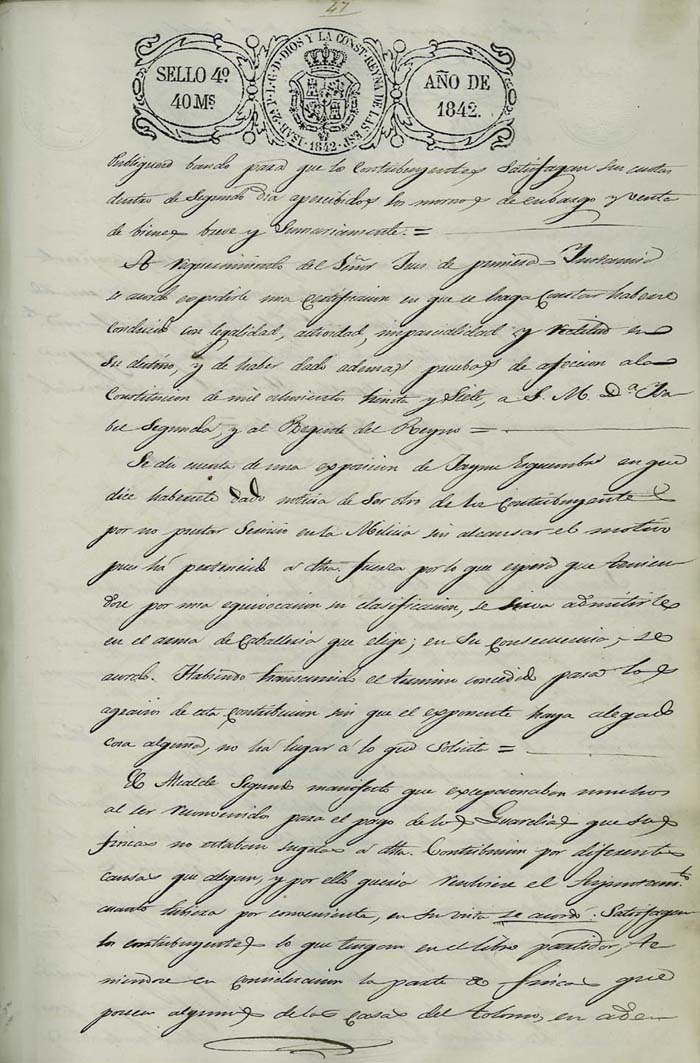 47
SELLO 4º
40 Ms
ISAB. 2ª P. L. G. D. DIOS Y LA CONST. REYNA DE LAS ESP. 1842
AÑO DE
1842.
bando para que los Contribuyentes Satisfagan sus cuotas
dentro de Segundo dia apercibidos los morosos de embargo y venta
de bienes breve y Sumariamente. =
A requerimiento del Señor Jues de primera Instancia
se acordó expedirle una Certificacion en que se haga Constar haberse
conducido con legalidad, actividad, imparcialidad y rectitud en
Su destino, y de haber dado ademas pruebas de afeccion a la
Constitucion de mil ochocientos treinta y Siete, a S. M. D.ª Isa
bel Segunda, y al Regente del Reyno =
Se dió cuenta de una exposicion de Jayme en que
dice habersele dado noticia de Ser otro de los Contribuyentes
por no prestar Servicio en la Milicia sin alcansar el motivo
pues há pertenecido á dha. fuerza por lo que espera que tenien
dose por una equivocacion su clasificacion, se sirva admitirle
en el arma de Caballeria que elige; en Su Consecuencia, se
acordó. Habiendo transcurrido el termino concedido para los
agravios de esta Contribucion sin que el exponente haya alegado
cosa alguna, no há lugar a lo que Solicita =
El Alcalde Segundo manifestó que excepcionaban muchos
al ser reconvenidos para el pago de los Guardias que sus
fincas no estaban sugetas á dha. Contribucion por diferentes
causas que alegan, y por ello queria resolviese el Ayuntam.to
cuanto tubiera por conveniente, en Su vista se acordó: Satisfagan
los contribuyentes lo que tengan en el libro partidor, te
niendose en consideracion la parte de fincas que
poseen algunos de las Casas del Colomo, en aden